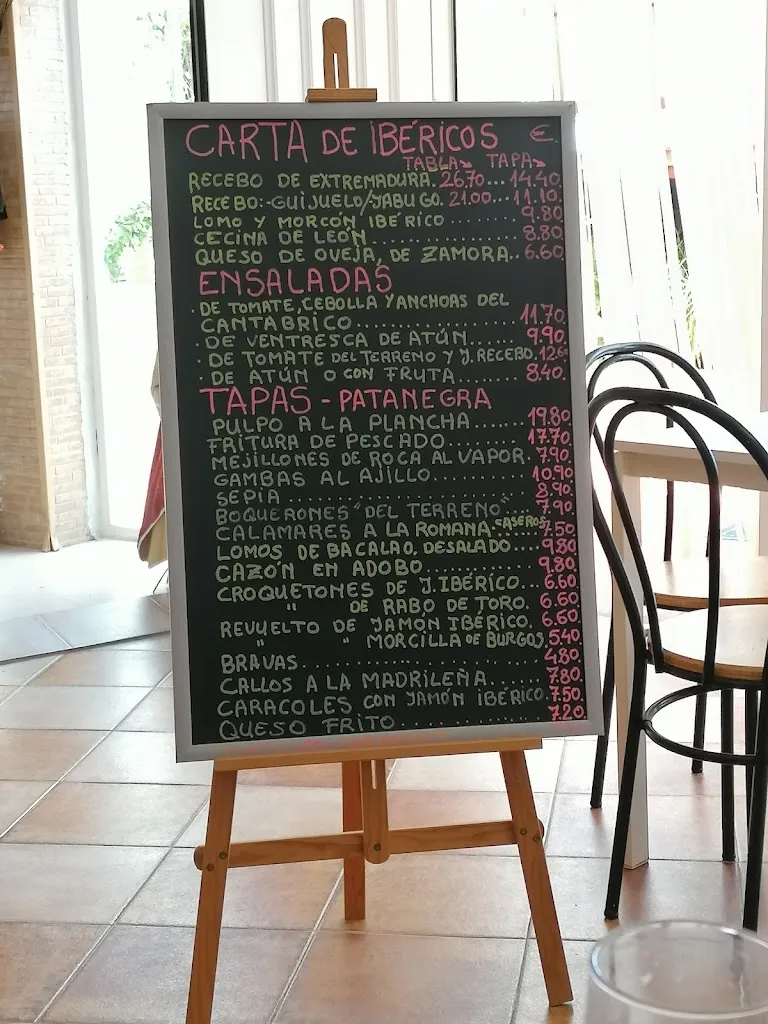 CARTA DE IBÉRICOS €
TABLA TAPA
RECEBO DE EXTREMADURA. 26.70... 14.40.
RECEBO:-GUIJUELO/JABUGO. 21.00... 11.10.
LOMO Y MORCÓN IBÉRICO ........ 9.80
CECINA DE LEÓN .............. 8.80
QUESO DE OVEJA, DE ZAMORA.. 6.60.
ENSALADAS
· DE TOMATE, CEBOLLA Y ANCHOAS DEL
CANTÁBRICO ............ 11.70.
· DE VENTRESCA DE ATÚN...... 9.90.
· DE TOMATE DEL TERRENO Y J. RECEBO. 12.60
· DE ATÚN O CON FRUTA...... 8.40.
TAPAS - PATANEGRA
PULPO A LA PLANCHA...... 19.80
FRITURA DE PESCADO....... 17.70
MEJILLONES DE ROCA AL VAPOR. 7.90.
GAMBAS AL AJILLO.......... 10.90
SEPIA .................. 8.90.
BOQUERONES "DEL TERRENO" 7.90
CALAMARES A LA ROMANA. CASEROS 7.50
LOMOS DE BACALAO, DESALADO .... 9.80
CAZÓN EN ADOBO .......... 9.80
CROQUETONES DE J. IBÉRICO... 6.60.
" DE RABO DE TORO. 6.60
REVUELTO DE JAMÓN IBÉRICO. 6.60.
" " MORCILLA DE BURGOS. 5.40
BRAVAS .................. 4.80
CALLOS A LA MADRILEÑA....... 7.80
CARACOLES CON JAMÓN IBÉRICO. 7.50.
QUESO FRITO .......... 7.20